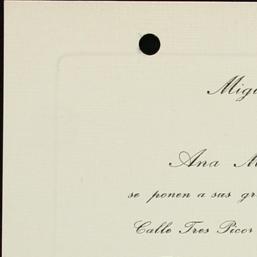 Migu
Ana M
se ponen a sus gr
Calle Tres Picos